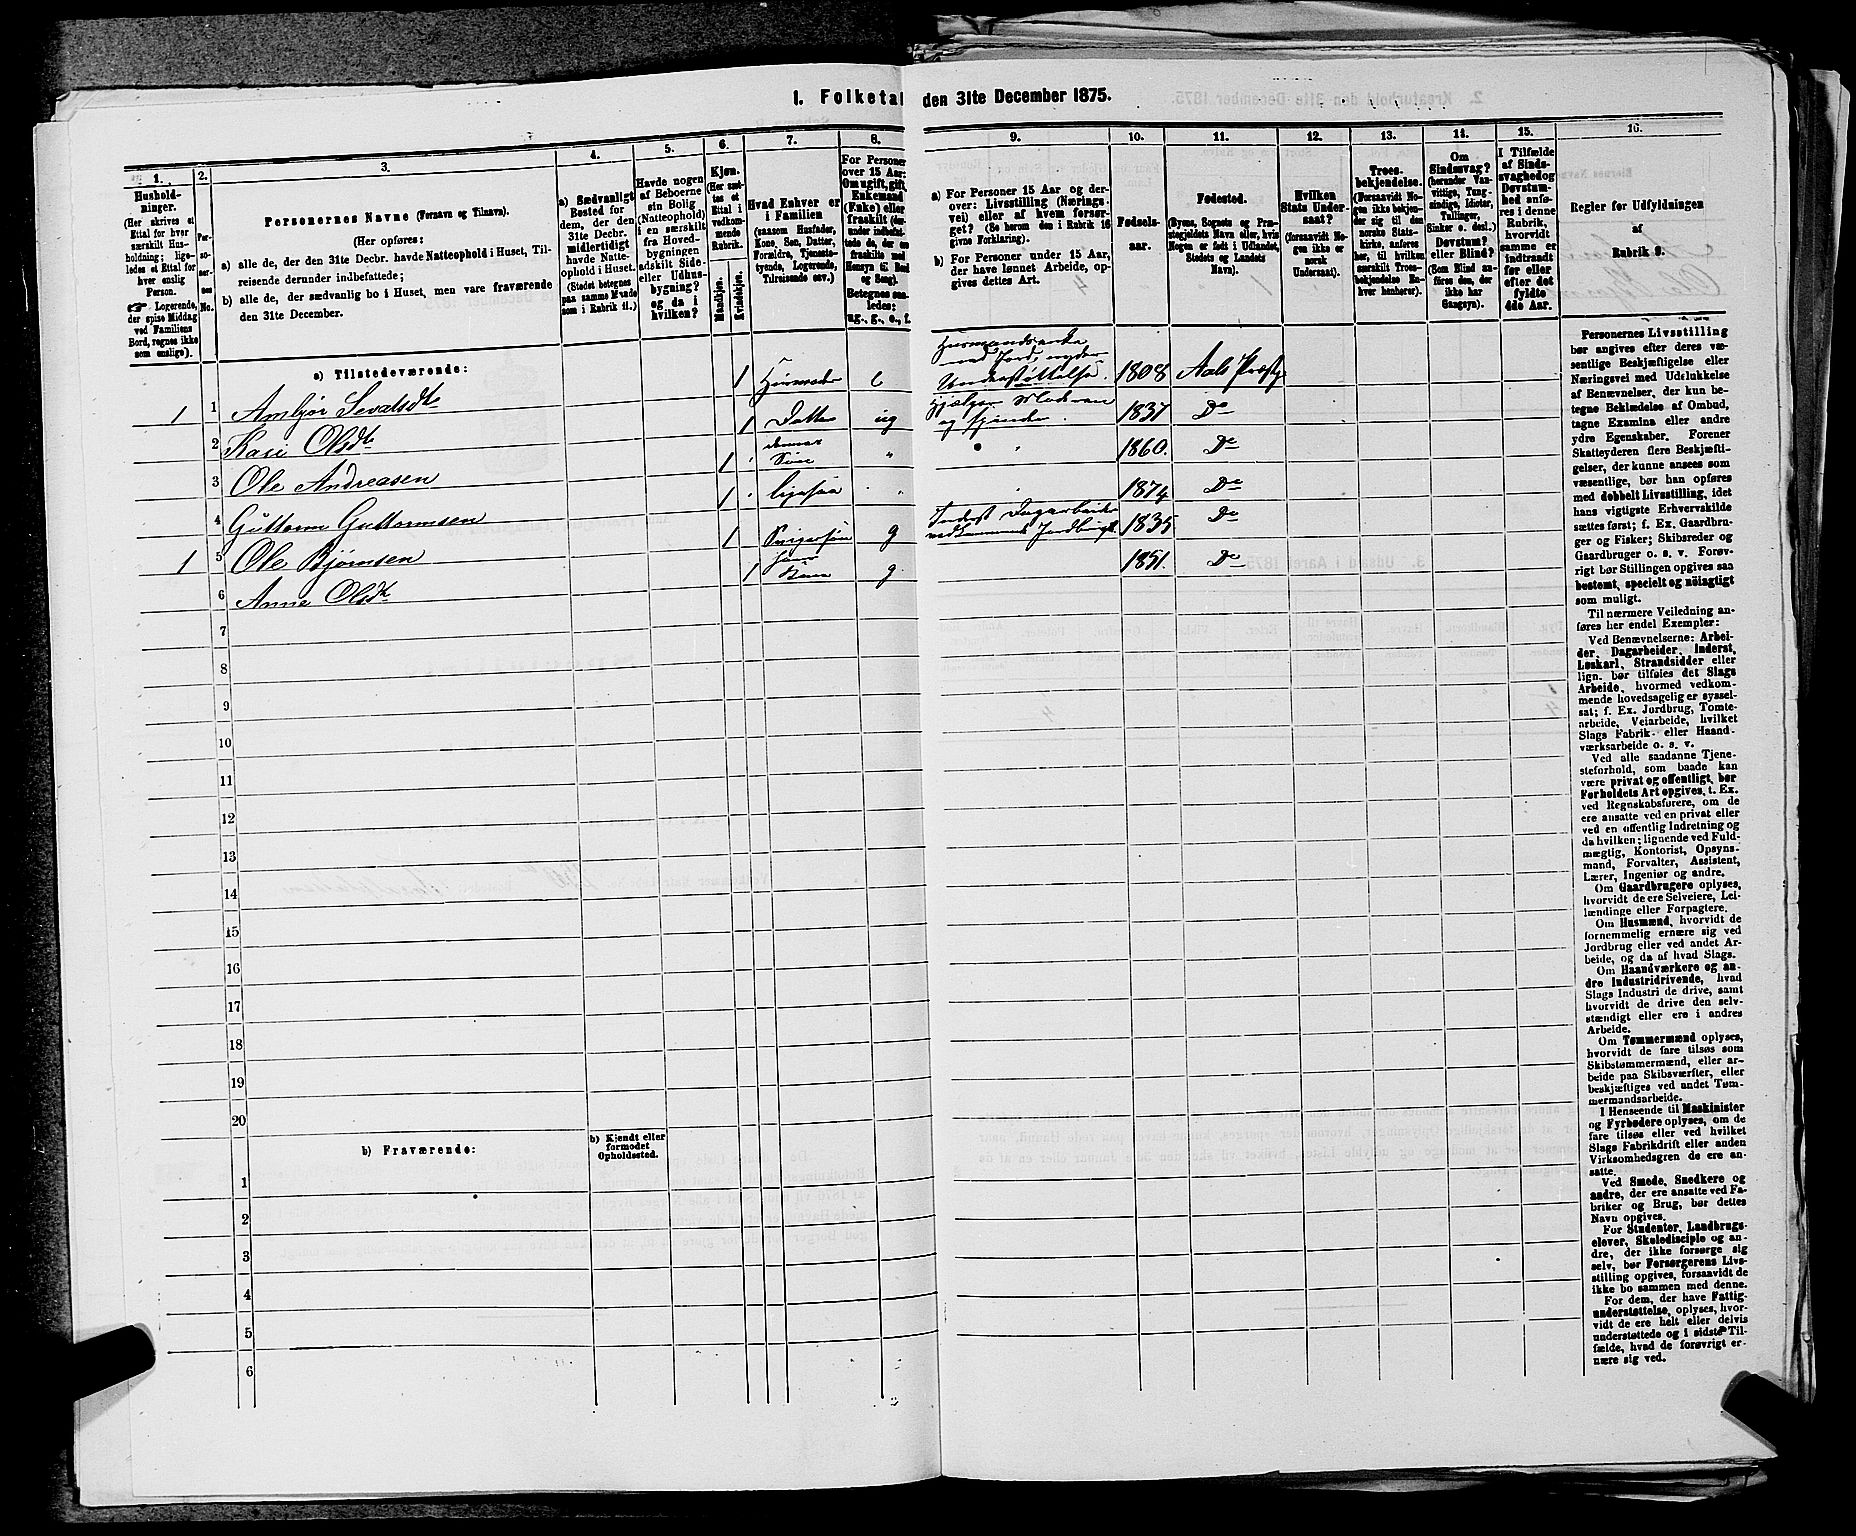 1. Folketal
den 31te December 1875.
1.
Hushold-
ninger.
(Her skrives et
Ettal for hver
særskilt Hus-
holdning; lige-
ledes et Ettal for
hver enslig
Person.
Logerende,
der spise Middag
ved Familiens
Bord, regnes ikke
som enslige).
2.
Per-
so-
ner-
nes
No.
3.
Personernes Navne (Fornavn og Tilnavn).
(Her opføres:
a) alle de, der den 31te Decbr. havde Natteophold i Huset, Til-
reisende derunder indbefattede;
b) alle de, der sædvanlig bo i Huset, men vare fraværende
den 31te December.
4.
a) Sædvanligt
Bosted for
dem, der den
31te Decbr.
midlertidigt
havde Natte-
ophold i Huset.
(Stedet betegnes
paa samme Maade
som i Rubrik 11.)
5.
Havde nogen
af Beboerne
sin Bolig
(Natteophold)
i en særskilt
fra Hoved-
bygningen
adskilt Side-
eller Udhus-
bygning?
og da i
hvilken?
6.
Kjøn.
(Her sæt-
tes et
Ettal i
vedkom-
mende
Rubrik.
Mandkjøn.
Kvindekjøn.
7.
Hvad Enhver er
i Familien
(saasom Husfader,
Kone, Søn, Datter,
Forældre, Tjeneste-
tyende, Logerende,
Tilreisende osv.)
8.
For Personer
over 15 Aar:
Om ugift, gift,
Enkemand
(Enke) eller
fraskilt
Betegnes saa-
ledes:
ug., g., e., f.
9.
a) For Personer 15 Aar og der-
over: Livsstilling (Nærings-
vei) eller af hvem forsør-
get? (Se herom den i Rubrik 16
givne Forklaring).
b) For Personer under 15 Aar,
der have lønnet Arbeide, op-
gives dettes Art.
10.
Fødsels-
aar.
11.
Fødested.
(Byens, Sognets og Præ-
stegjeldets Navn eller, hvis
Nogen er født i Udlandet,
Stedets og Landets
Navn).
12.
Hvilken
Stats Under-
saat?
(foraavidt No-
gen ikke er
norsk
Undersaat).
13.
Troes-
bekjendelse.
(Forsaavidt No-
gen ikke bekjen-
der sig til den
norske Stats-
kirke, anføres
her, til hvilken
særskilt Troes-
bekjendelse En-
hver henhører).
14.
Om
Sindssvag?
(herunder Van-
vittige, Tung-
sindige, Idioter,
Tullinger,
Sinker o. desl.)
Døvstum?
eller Blind?
(Som Blind an-
føres den, der
ikke har
Gangsyn).
15.
I Tilfælde
af Sinds-
svaghed og
Døvstum-
hed anfø-
res i denne
Rubrik,
hvorvidt
samme er
indtraadt
før eller
efter det
fyldte
4de Aar.
16.
Regler for Udfyldningen
af
Rubrik 9.
a) Tilstedeværende:
1 1 Ambjør Sevatsdt 1 Husmoder e Husmandsenke med Jord, nyder Understøttelse. 1808 Aals Præstg
2 Kari Olsdt 1 Datter ug Hjælper Moderen 1837 Do
3 Ole Andreasen 1 dennes Søn " 1860. Do
4 Guttorm Guttormsen 1 ligesaa " 1874 Do
1 5 Ole Bjørnsen 1 Svigersøn g Inderst Dagarbeider 1835 Do
6 Anne Olsdt 1 hans Kone g. 1851. Do
7
8
9
10
11
12
13
14
15
16
17
18
19
20
b) Fraværende:
b) Kjendt eller
formodet
Opholdssted.
1
2
3
4
5
6
Personernes Livsstilling
bør angives efter deres væ-
sentlige Beskjæftigelse eller
Næringsvei med Udelukkelse
af Benævnelser, der kun be-
tegne Beklædelse af Ombud,
tagne Examina eller andre
ydre Egenskaber. Forener
Skatteyderen flere Beskjæfti-
gelser, der kunne ansees som
væsentlige, bør han opføres
med dobbelt Livsstilling, idet
hans vigtigste Erhvervskilde
sættes først; f. Ex. Gaardbru-
ger og Fisker; Skibsreder og
Gaardbruger o. s. v. Forøv-
rigt bør Stillingen opgives saa
bestemt, specielt og nöiagtigt
som muligt.
Til nærmere Veiledning an-
føres her endel Exempler:
Ved Benævnelserne: Arbei-
der, Dagarbeider, Inderst,
Løskarl, Strandsidder eller
lign. bør tilføies det Slags
Arbeide, hvormed vedkom-
mende hovedsagelig er syssel-
sat; f. Ex. Jordbrug, Tomte-
arbeide, Veiarbeide, hvilket
Slags Fabrik- eller Haand-
værksarbeide o. s. v.
Ved alle saadanne Tjene-
steforhold, som baade kan
være privat og offentligt, bør
Forholdets Art opgives, t. Ex.
ved Regnskabsførere, om de
ere ansatte ved en privat eller
ved en offentlig Indretning og
da hvilken; lignende ved Fuld-
mægtig, Kontorist, Opsyns-
mand, Forvalter, Assistent,
Lærer, Ingeniør og andre.
Om Gaardbrugere oplyses,
hvorvidt de ere Selveiere, Lei-
lændinge eller Forpagtere.
Om Husmænd, hvorvidt de
fornemmelig ernære sig ved
Jordbrug eller ved andet Ar-
beide, og da af hvad Slags.
Om Haandværkere og an-
dre Industridrivende, hvad
Slags Industri de drive, samt
hvorvidt de drive den selv-
stændigt eller ere i andres
Arbeide.
Om Tømmermænd oplyses,
hvorvidt de fare tilsøs som
Skibstømmermænd, eller ar-
beide paa Skibsværfter, eller
beskjæftiges ved andet Tøm-
mermandsarbeide.
I Henseende til Maskinister
og Fyrbødere oplyses, om de
fare tilsøs eller ved hvilket
Slags Fabrikdrift eller anden
Virksomhedsgren de ere an-
satte.
Ved Smede, Snedkere og
andre, der ere ansatte ved Fa-
briker og Brug, bør dettes
Navn opgives.
For Studenter, Landbrugs-
elever, Skoledisciple og an-
dre, der ikke forsørge sig
selv, bør Forsørgerens Livs-
stilling opgives, forsaavidt de
ikke bo sammen med denne.
For dem, der have Fattig-
understøttelse, oplyses, hvor-
vidt de ere helt eller delvis
understøttede og i sidste Til-
fælde, hvad de forøvrigt er-
nære sig ved.